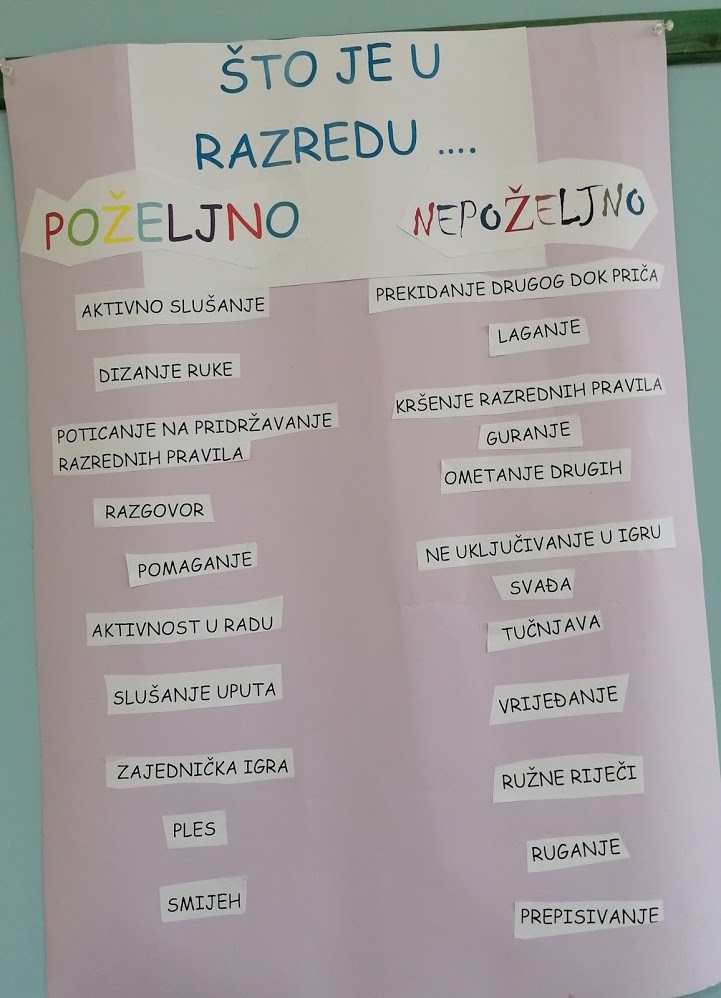 ŠTO JE U
RAZREDU ....
POŽELJNO
AKTIVNO SLUŠANJE
DIZANJE RUKE
POTICANJE NA PRIDRŽAVANJE
RAZREDNIH PRAVILA
RAZGOVOR
POMAGANJE
AKTIVNOST U RADU
SLUŠANJE UPUTA
ZAJEDNIČKA IGRA
PLES
SMIJEH
NEPOŽELJNO
PREKIDANJE DRUGOG DOK PRIČA
LAGANJE
KRŠENJE RAZREDNIH PRAVILA
GURANJE
OMETANJE DRUGIH
NE UKLJUČIVANJE U IGRU
SVAĐA
TUČNJAVA
VRIJEĐANJE
RUŽNE RIJEČI
RUGANJE
PREPISIVANJE